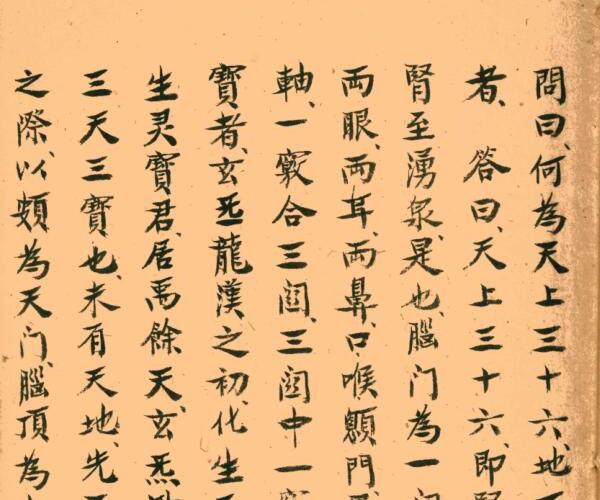 問曰、何為天上三十六、地
者、答曰、天上三十六、即
腎至湧泉、是也、腦门為一
両眼、両耳、両鼻、口喉顖門
軸、一竅合三囙、三囙中一竅
寶者、玄炁龍漢之初、化生
生灵寶君、居禹餘天、玄炁
三天三寶也、未有天地、先
之際、以頞為天门、腦頂為